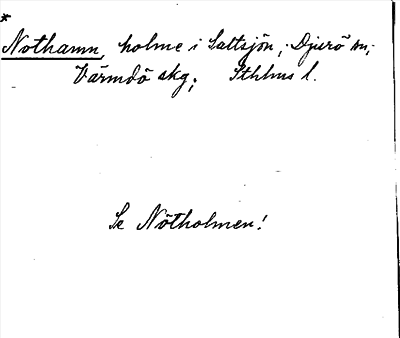 *
Nothamn, holme i Saltsjön, Djurö sn,
Värmdö skg, Sthlms l.
Se Nötholmen!